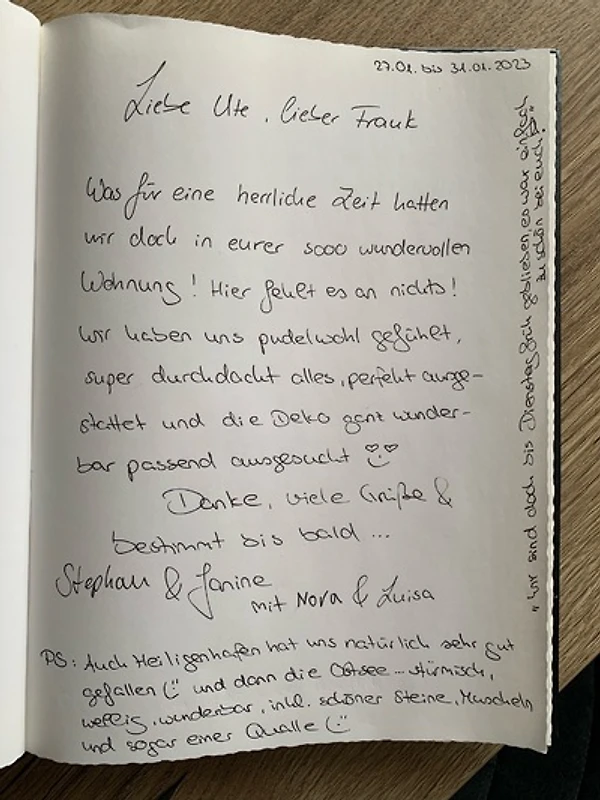 27.01. bis 31.01.2023
Liebe Ute, lieber Frank
Was für eine herrliche Zeit hatten
wir doch in eurer sooo wundervollen
Wohnung! Hier fehlt es an nichts!
Wir haben uns pudelwohl gefühlt,
super durchdacht alles, perfekt ausge-
stattet und die Deko ganz wunder-
bar passend ausgesucht
Danke, viele Grüße &
bestimmt bis bald ...
Stephan & Janine
mit Nora & Luisa
PS: Auch Heiligenhafen hat uns natürlich sehr gut
gefallen (: und dann die Ostsee ... stürmisch,
wellig, wunderbar, inkl. schöner Steine, Muscheln
und sogar einer Qualle (:
"Wir sind doch bis Dienstag früh geblieben, es war einfach
zu schön bei euch!"